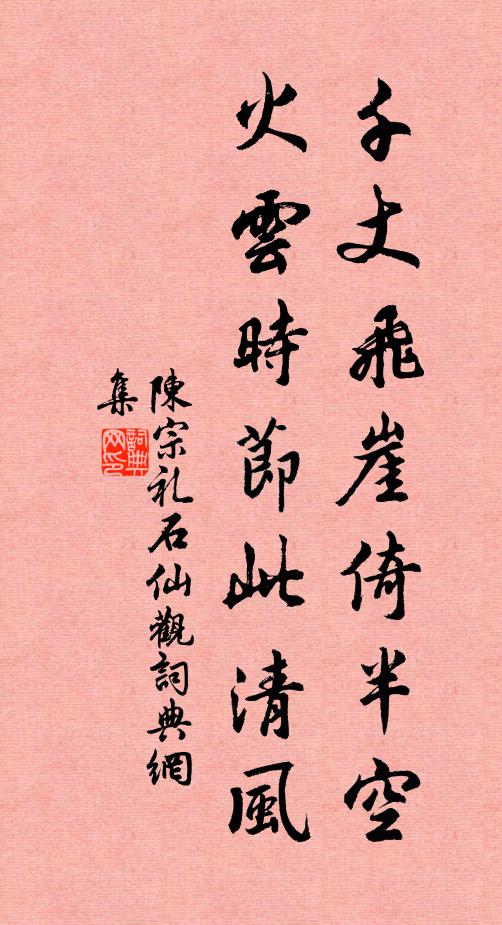 千丈飛崖倚半空
火雲時節此清風
陳宗礼石仙觀詞典網
集
詞典网印